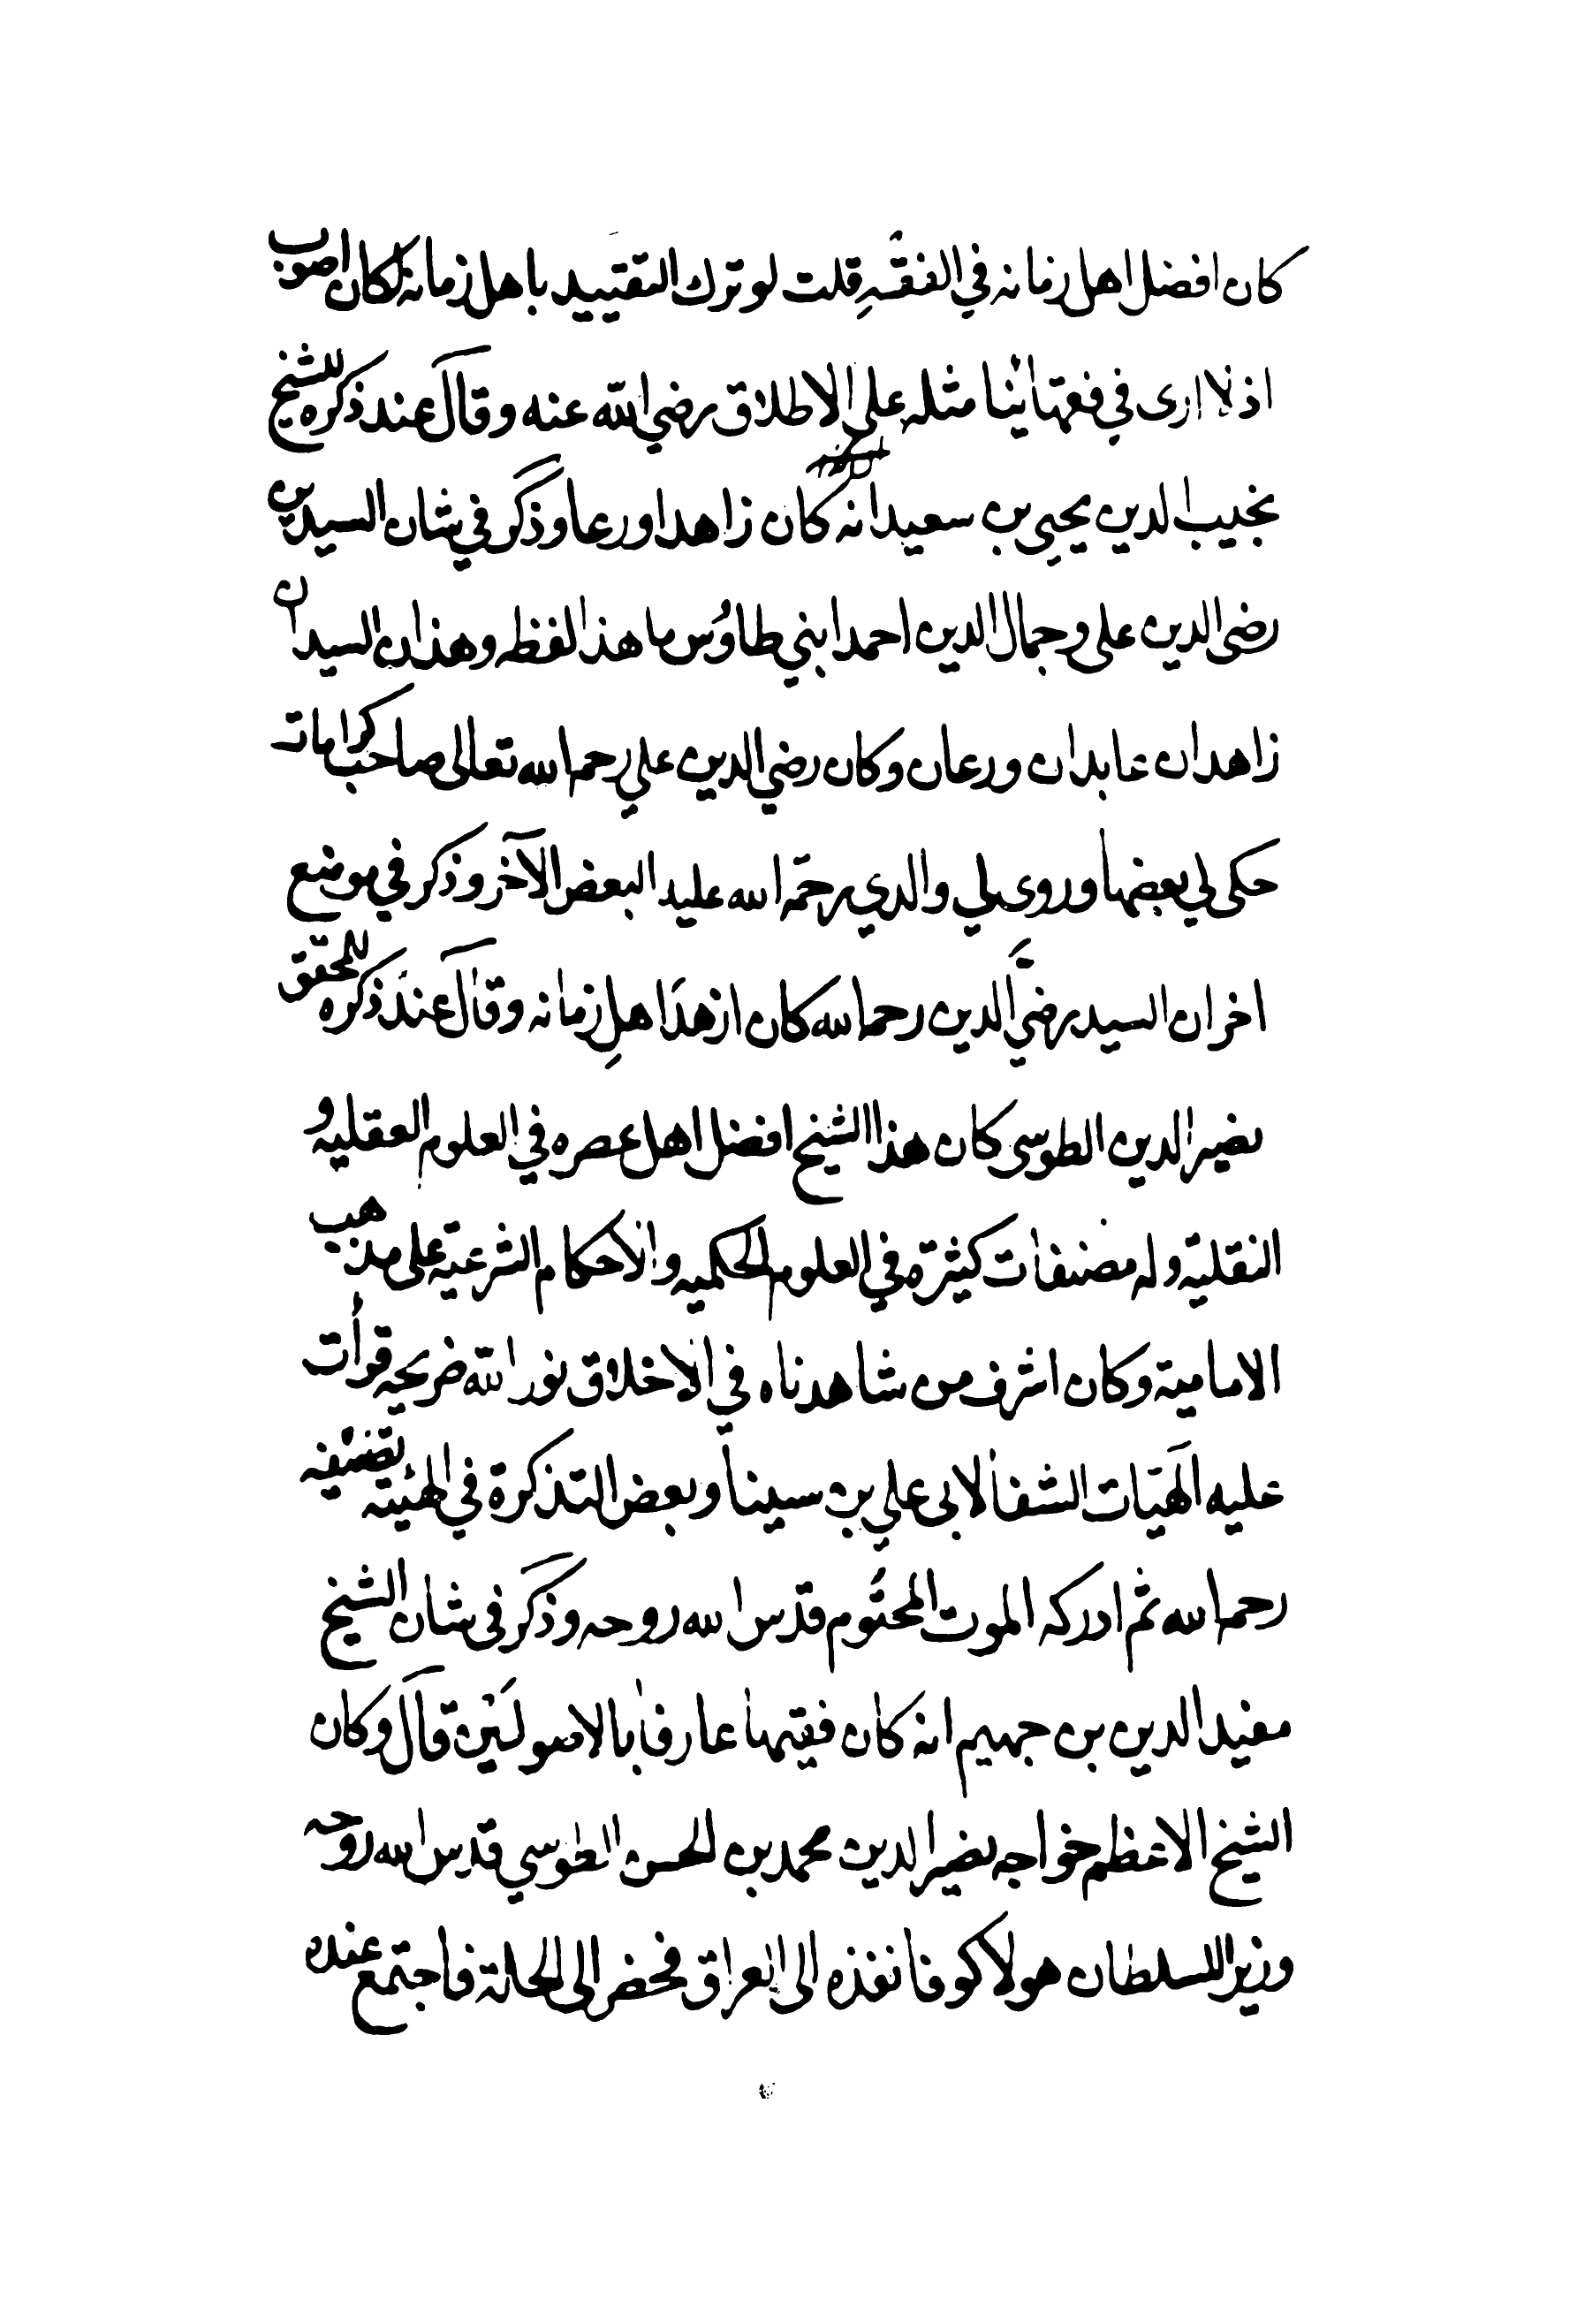 كان افضل اهل زمانه في الفقه قلت لو ترك التقييد باهل زمانه لكان اصوب
اذ لا ارى في فقهائنا مثله على الاطلاق رضي الله عنه وقال عند ذكره للشيخ
نجيب الدين يحيى بن سعيد انه كان زاهدا ورعا وذكر في شان السيدين
رضى الدين على وجمال الدين احمد ابني طاوس ما هذا لفظه وهذان السيدان
زاهدان عابدان ورعان وكان رضي الدين علي رحمه الله تعالى صاحب كرامات
حكى لي بعضها وروى لي والدي رحمة الله عليه البعض الآخر وذكر في موضع
اخر ان السيد رضي الدين رحمه الله كان ازهد اهل زمانه وقال عند ذكره للمحقق
نصير الدين الطوسى كان هذا الشيخ افضل اهل عصره في العلوم العقلية و
النقلية وله مصنفات كثيرة في العلوم الحكميه والاحكام الشرعية على مذهب
الامامية وكان اشرف من شاهدناه في الاخلاق نور الله ضريحه قرأت
عليه الهيات الشفا لابى علي بن سينا وبعض التذكرة في الهيئة تصنيفه
رحمه الله ثم ادركه الموت المحتوم قدس الله روحه وذكر في شان الشيخ
مفيد الدين بن جهيم انه كان فقيها عارفا بالاصولين قال وكان
الشيخ الاعظم خواجه نصير الدين محمد بن الحسن الطوسي قدس الله روحه
وزير السلطان هولاكو فانفذه الى العراق فحضر الى الحلة فاجتمع عنده